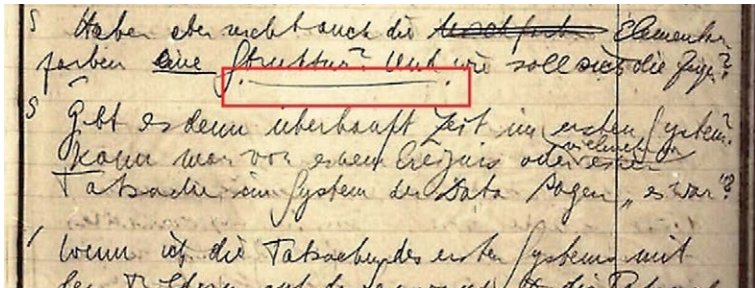 S Haben aber nicht auch die Elementar-
farben eine Struktur? Und wie soll sich die zeigen?
S Gibt es denn überhaupt Zeit im ersten System?
Kann man von einem Ereignis oder vielmehr einer
Tatsache im System der Data sagen „es war"?
/ Wenn ich die Tatsachen des ersten Systems mit
den Bildern auf der